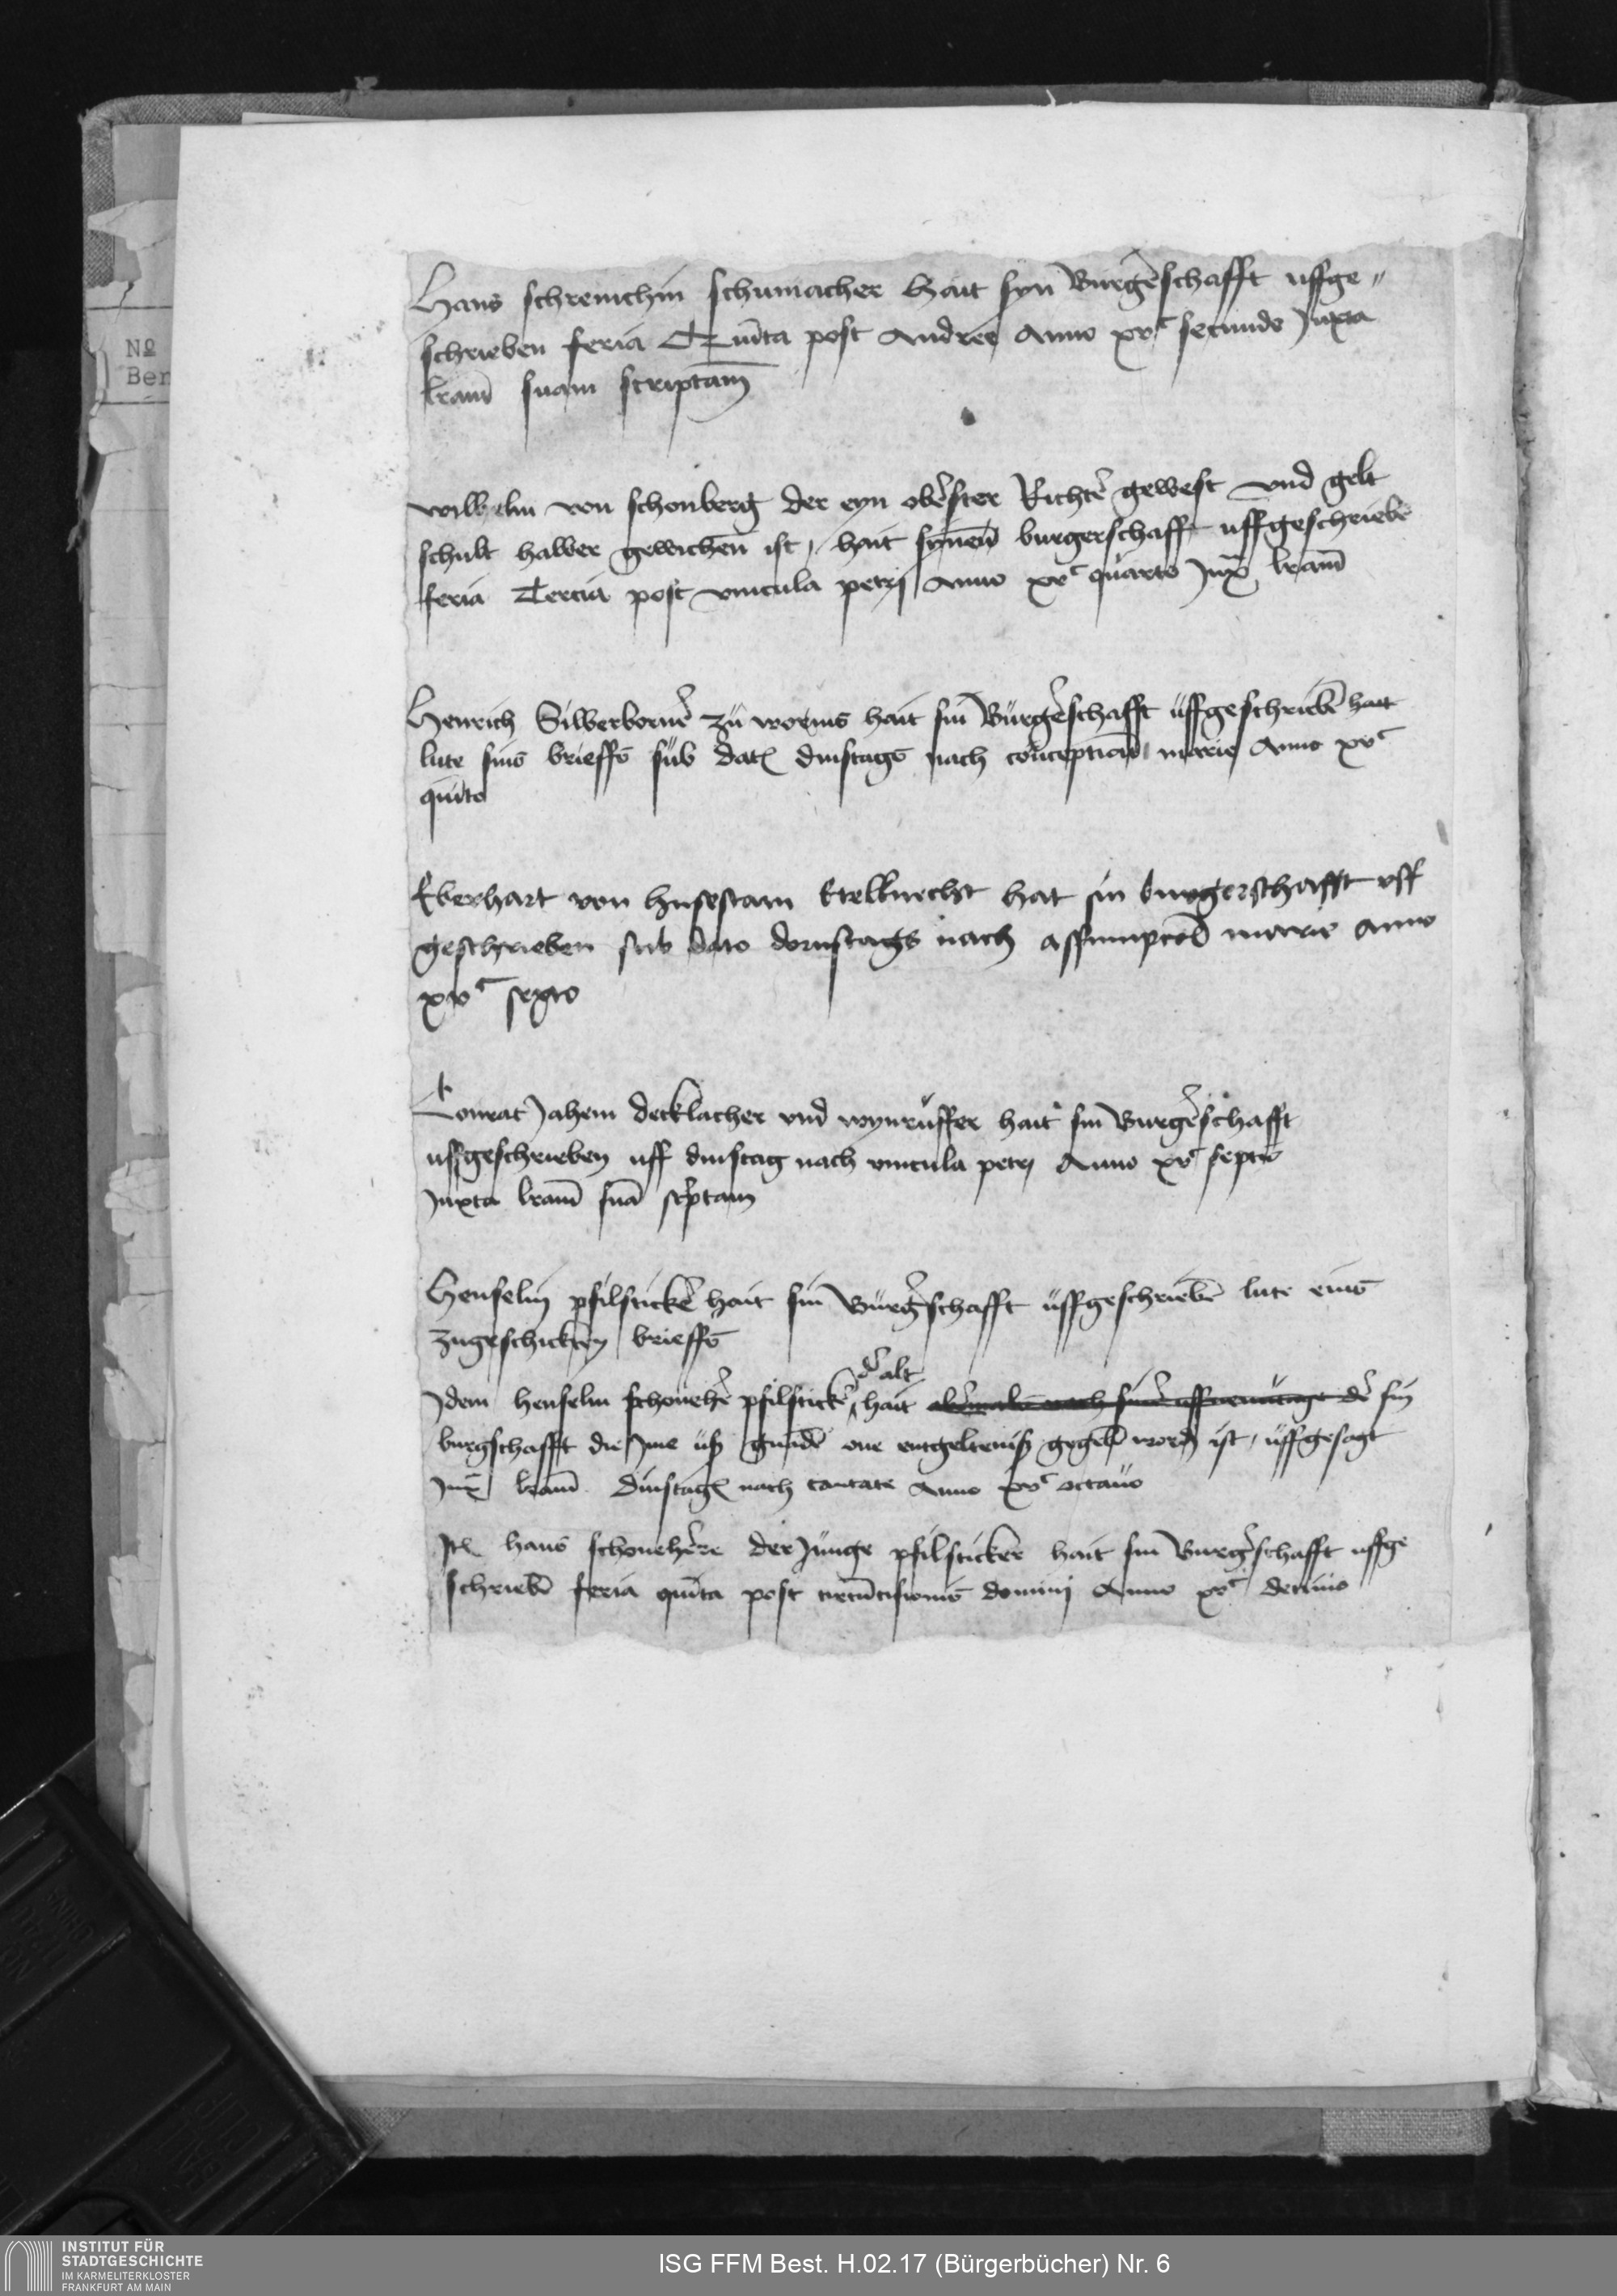 Hans schremchin schumacher Hait syn Burgerschafft uffge"
schrieben feria Quinta post Andree Anno xvc secundo Juxta
lram suam scriptam
Wilhelm von schonberg der eyn oberster Richter gewest vnd gelt
schult halber gewichen ist, hait synen burgerschafft uffgeschriebe
feria Tercia post vincula petri Anno xvc quarto Jux lram
Henrich Silberborner zu worms hait sin Burgerschafft uffgeschriebe hait
lute sins brieffs sub dat dinstags nach conceptionis marie Anno xvc
quinto
Eberhart von Husestam Stelknecht hat sin burgerschafft vff
geschrieben sub dato dornstags nach assumpcois marie anno
xvc sexto
Conrat Jahem decklacher vnd wynruffer hait sin Burgerschafft
uffgeschrieben uff dinstag nach vincula petri Anno xvc septio
Juxta lram sua scptam
Henselin pfilsticker hait sin Burgerschafft uffgeschriebe lute eins
zugeschickten brieffs
der alt
Jdem Henselin schoneher pfilsticker hait sin
burgschafft die Jme uß gnade one entgelteniß gegebe word ist, uffgesagt
Jux lram Dinstag nach cantate Anno xvc octauo
Jt Hans schonehere der Junge pfilsticker hait sin Burgerschafft uffge
schriebe feria quinta post circucisionis domini Anno xvc decimo
Nº
Ber
INSTITUT FÜR
STADTGESCHICHTE
IM KARMELITERKLOSTER
FRANKFURT AM MAIN
ISG FFM Best. H.02.17 (Bürgerbücher) Nr. 6